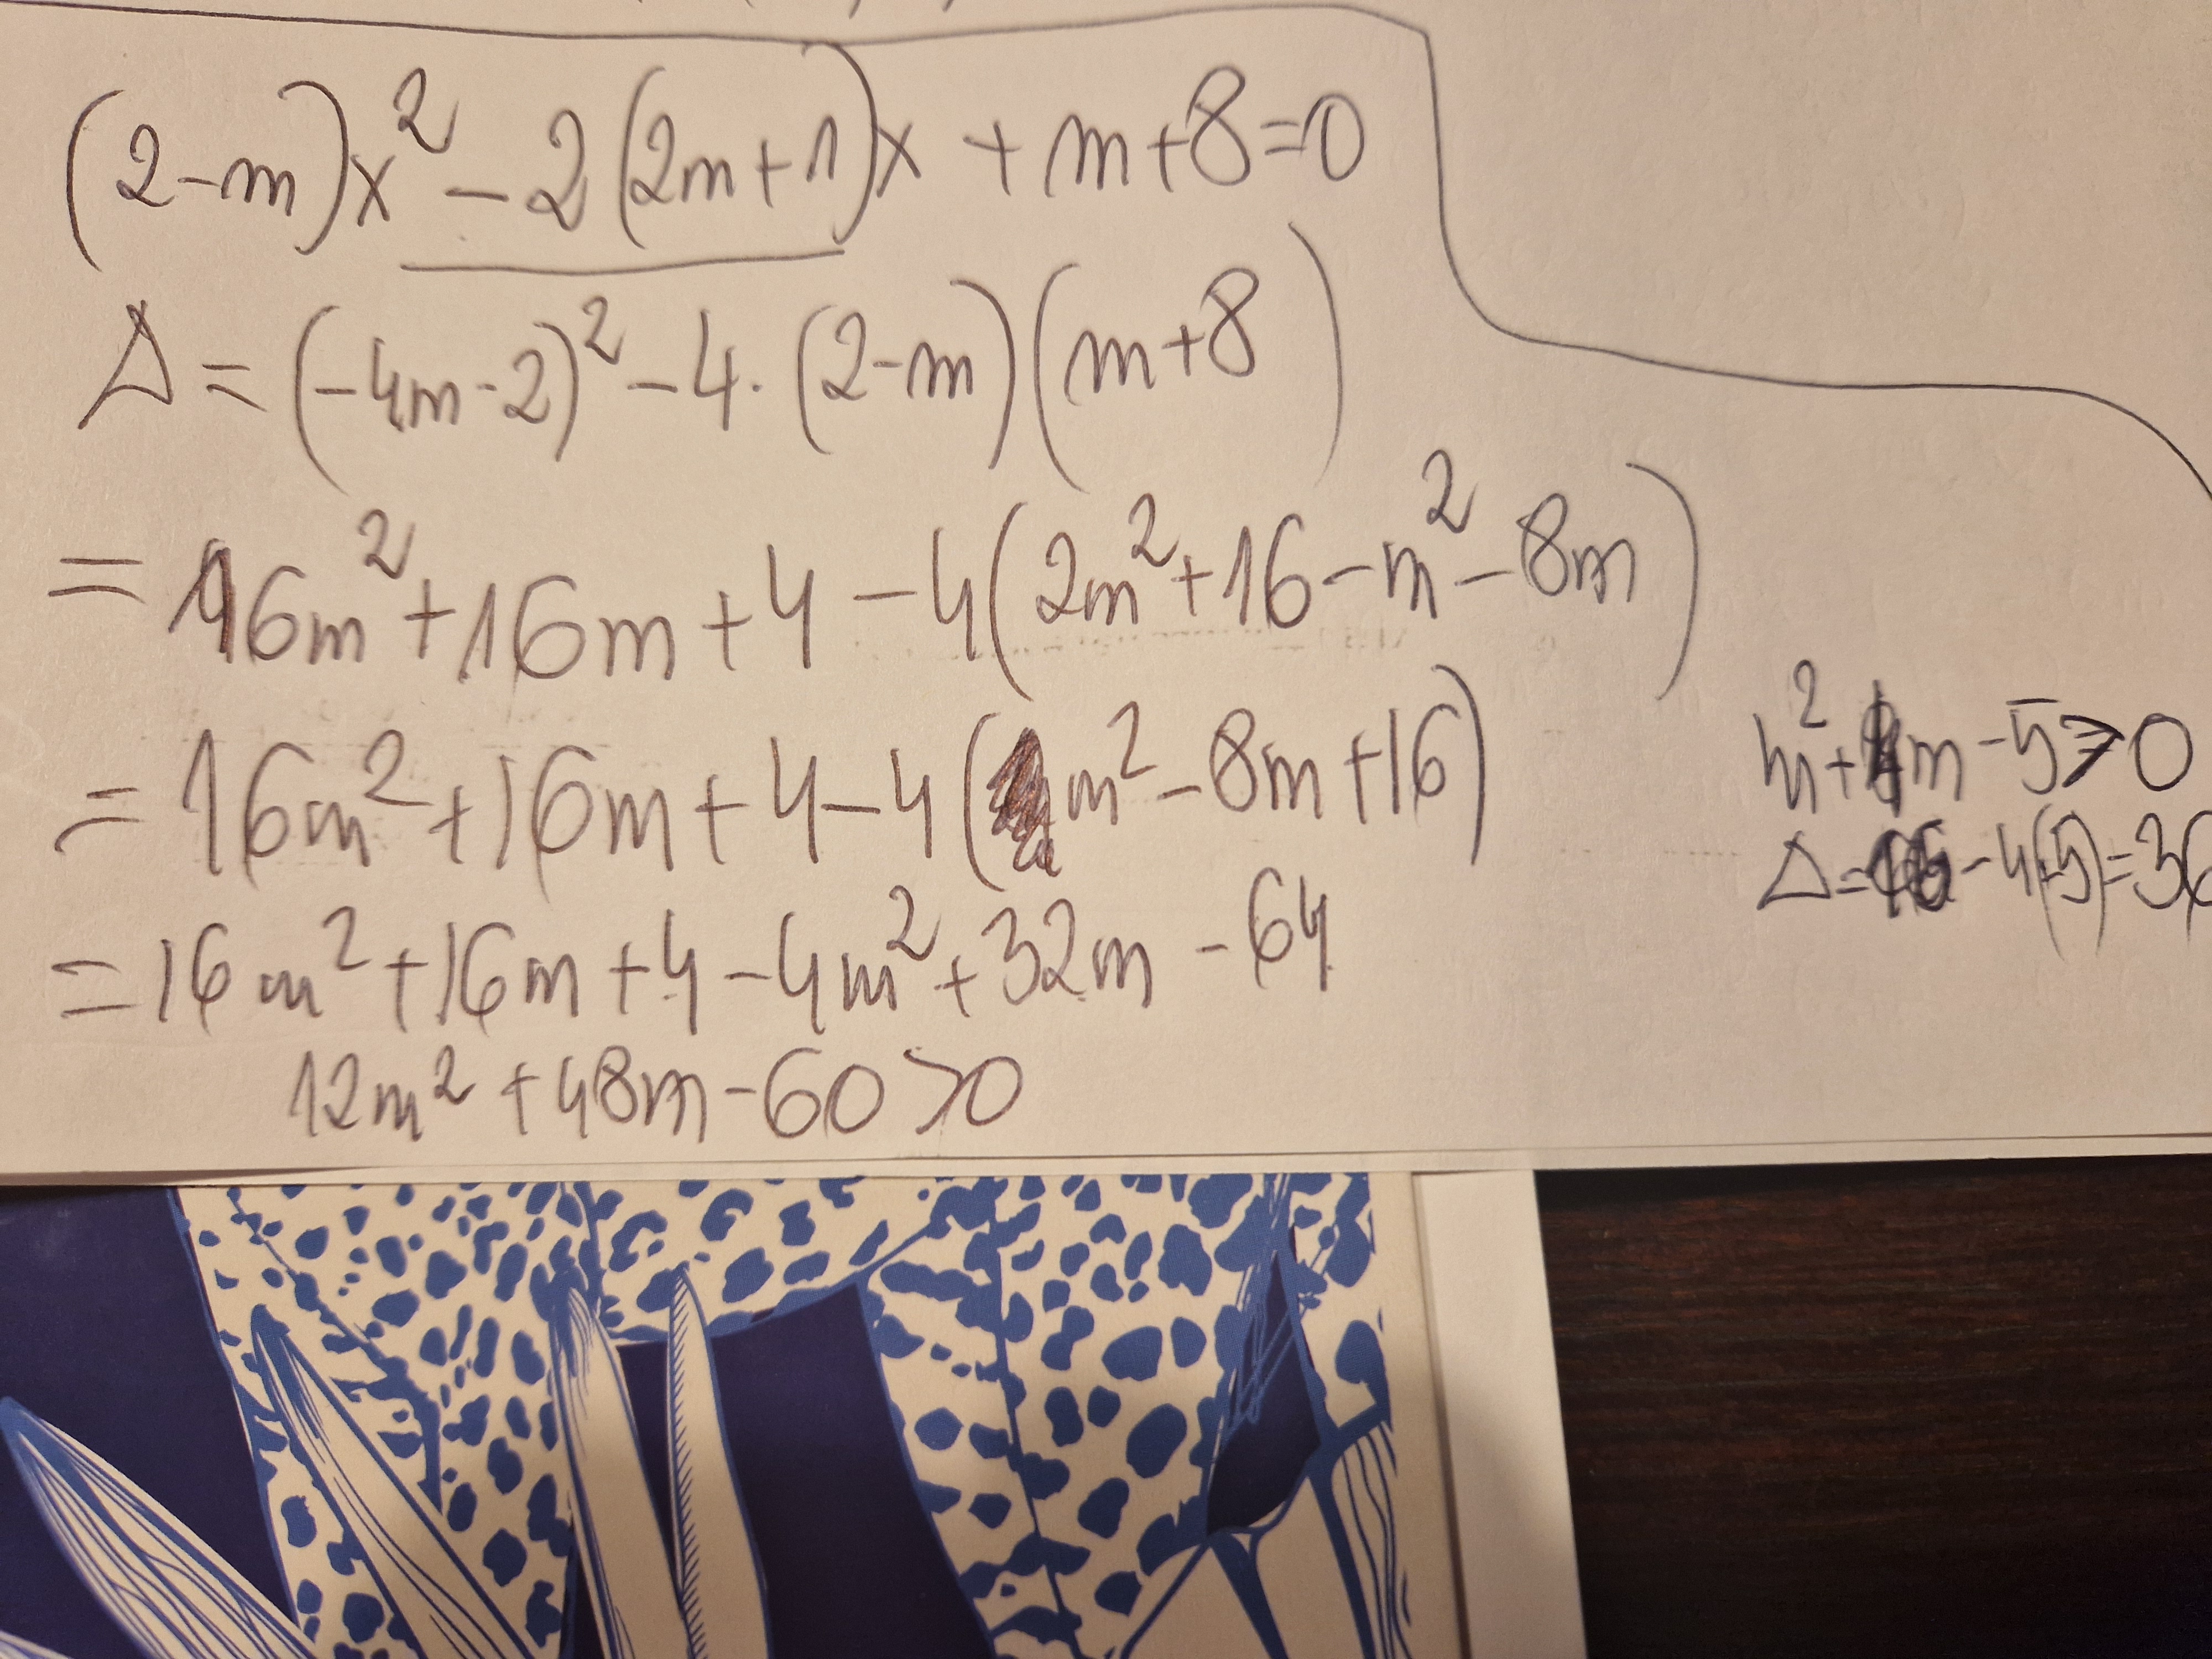 (2-m)x² - 2(2m+1)x + m+8=0
Δ = (-4m-2)² - 4·(2-m)(m+8)
= 16m² + 16m + 4 - 4(2m² + 16 - m² - 8m)
= 16m² + 16m + 4 - 4(m² - 8m + 16)
= 16m² + 16m + 4 - 4m² + 32m - 64
12m² + 48m - 60 > 0
m² + 4m - 5 > 0
Δ = 16 - 4(-5) = 36